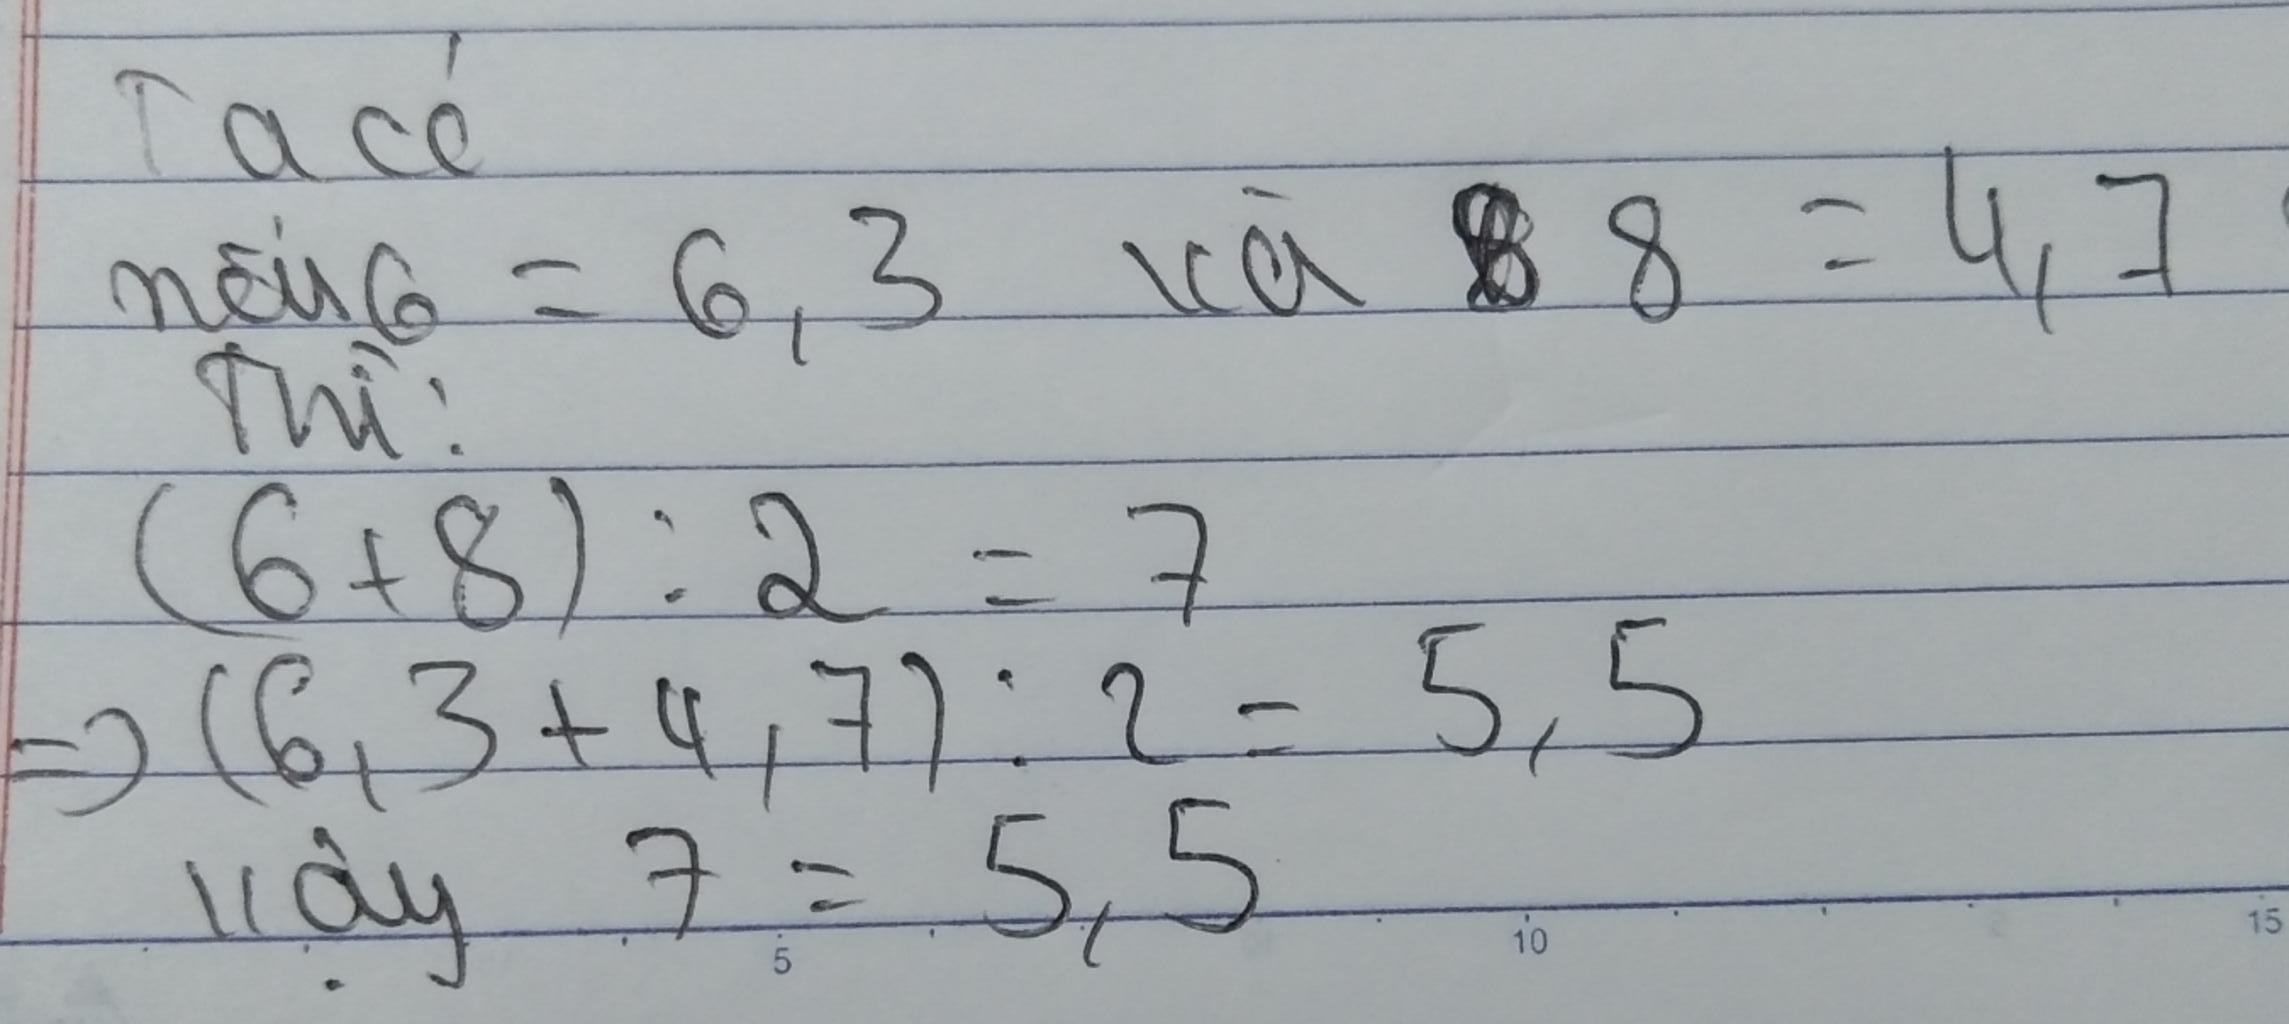 Ta có
nếu 6 = 6,3 và 8 = 4,7
Thì:
(6+8) : 2 = 7
=> (6,3+4,7) : 2 = 5,5
vậy 7 = 5,5
5 10 15